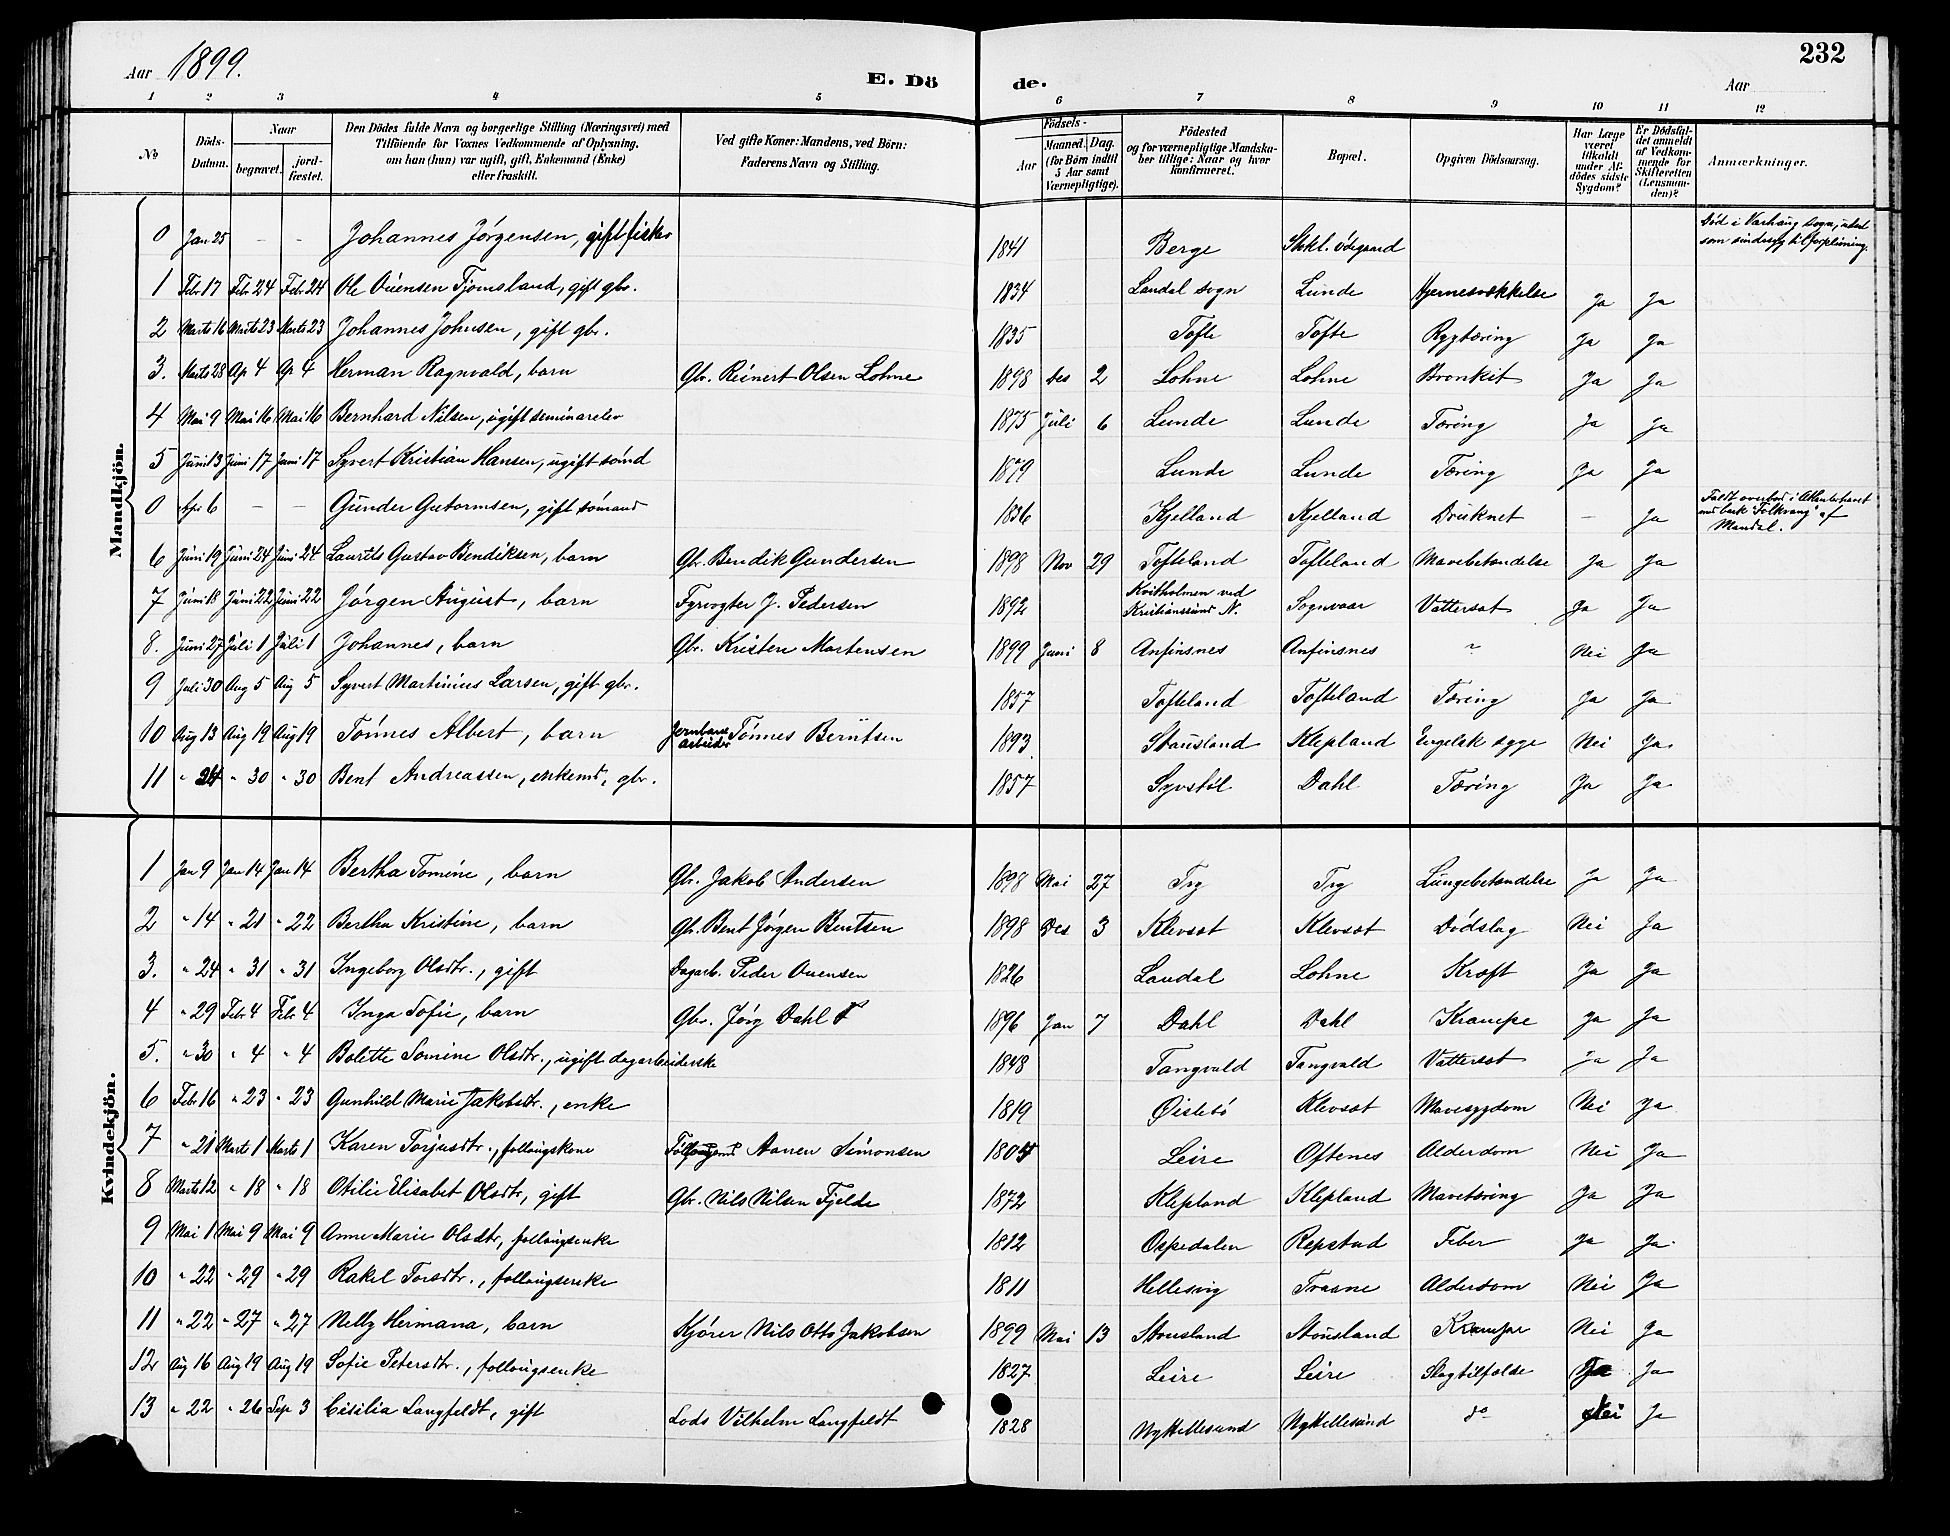 232
Aar 1899. E. Dö de. Aar
1 2 3 4 5 6 7 8 9 10 11 12
No Döds-Datum. Naar begravet. jord-fæstet. Den Dödes fulde Navn og borgerlige Stilling (Næringsvei) med Tilföiende for Voxnes Vedkommende af Oplysning, om han (hun) var ugift, gift, Enkemand (Enke) eller fraskilt. Ved gifte Koner: Mandens, ved Börn: Faderens Navn og Stilling. Födsels- Aar Maaned. Dag. (for Börn indtil 5 Aar samt Værnepligtige). Födested og for værnepligtige Mandskaber tillige: Naar og hvor konfirmeret. Bopæl. Opgiven Dödsaarsag. Har Læge været tilkaldt under Afdödes sidste Sygdom? Er Dödsfaldet anmeldt af Vedkommende for Skifteretten (Lensmanden)? Anmærkninger.
Mandkjön.
0 Jan 25 – – Johannes Jørgensen, gift fisker 1841 Berge Død i Varhaug sogn
1 Febr 17 Febr 24 Febr 24 Ole Ouensen Tjomsland, gift gbr. 1834 Laudal sogn Lunde Ja Ja
2 Marts 16 Marts 23 Marts 23 Johannes Johnsen, gift gbr. 1835 Tofte Tofte Rygtæring Ja Ja
3. Marts 28 Ap 4 Ap 4 Herman Ragnvald, barn Gbr. Reinert Olsen Lohne 1898 Des 2 Lohne Lohne Bronkit Ja Ja
4 Mai 9 Mai 16 Mai 16 Bernhard Nilsen, ugift seminarelev 1875 Juli 6 Lunde Lunde Tæring Ja Ja
5 Juni 13 Juni 17 Juni 17 Syvert Kristian Hansen, ugift sømd 1879 Lunde Lunde Tæring Ja Ja
0 Apr 6 – – Gunder Gutormsen, gift sømand 1836 Kjelland Kjelland Druknet – Ja Faldt overbord i Atlanterhavet med bark "Folkvang" af Mandal.
6 Juni 19 Juni 24 Juni 24 Laurits Gustav Bendiksen, barn Gbr. Bendik Gundersen 1898 Nov 29 Tofteland Tofteland Mavebetændelse Ja Ja
7 Juni 18 Juni 22 Juni 22 Jørgen August, barn Fyrvogter J. Pedersen 1892 Kvitholmen ved Kristianssund N. Vattersot Ja Ja
8. Juni 27 Juli 1 Juli 1 Johannes, barn Gbr. Kristen Martensen 1899 Juni 8 Anfinsnes Anfinsnes " Nei Ja
9 Juli 30 Aug 5 Aug 5 Syvert Martinius Larsen, gift gbr. 1857 Tofteland Tofteland Tæring Ja Ja
10 Aug 13 Aug 19 Aug 19 Tønnes Albert, barn Jernbane arbeider Tønnes Berntsen 1893 Stausland Klepland Engelsk syge Nei Ja
11 " 24 " 30 " 30 Bent Andreassen, enkemd, gbr. 1857 Syvstøl Dahl Tæring Ja Ja
Kvindekjön.
1 Jan 9 Jan 14 Jan 14 Bertha Tomine, barn Gbr. Jakob Andersen 1898 Mai 27 Try Try Lungebetændelse Ja Ja
2 " 14 " 21 " 22 Bertha Kristine, barn Gbr. Bent Jørgen Bentsen 1898 Des 3 Klevset Klevset Dødslag Nei Ja
3. " 24 " 31 " 31 Ingeborg Olsdtr., gift Dagarb. Peder Ouensen 1826 Laudal Lohne Kræft Ja Ja
4 " 29 Febr 4 Febr 4 Inga Sofie, barn Gbr. Jørg Dahl 1896 Jan 7 Dahl Dahl Krampe Ja Ja
5. " 30 " 4 " 4 Bolette Somine Olsdtr., ugift dagarbeiderske 1848 Tangvald Tangvald Vattersot Ja Ja
6 Febr 16 " 23 " 23 Gunhild Marie Jakobsdtr., enke 1819 Øislebø Klevset Mavesygdom Nei Ja
7 " 21 Marts 1 Marts 1 Karen Torjusdtr., follaugskone Aanen Simonsen 1804 Leire Oftenes Alderdom Nei Ja
8 Marts 12 " 18 " 18 Otilie Elisabet Olsdtr, gift Gbr. Nils Nilsen Fjelde 1872 Klepland Klepland Mavetæring Ja Ja
9 Mai 1 Mai 9 Mai 9 Anne Marie Olsdtr, follaugsenke 1812 Ospedalen Repstad Feber Ja Ja
10 " 22 " 29 " 29 Rakel Torsdtr., follaugsenke 1811 Hellesvig Traane Alderdom Nei Ja
11 " 22 " 27 " 27 Nelly Hermana, barn Kjører Nils Otto Jakobsen 1899 Mai 13 Stousland Stousland Krampe Nei Ja
12 Aug 16 Aug 19 Aug 19 Sofie Petersdtr., follaugsenke 1827 Leire Leire Slagtilfælde Ja Ja
13 " 22 " 26 Sep 3 Cisilia Langfeldt, gift Lods Vilhelm Langfeldt 1828 Ny Hellesund Ny Hellesund do Nei Ja